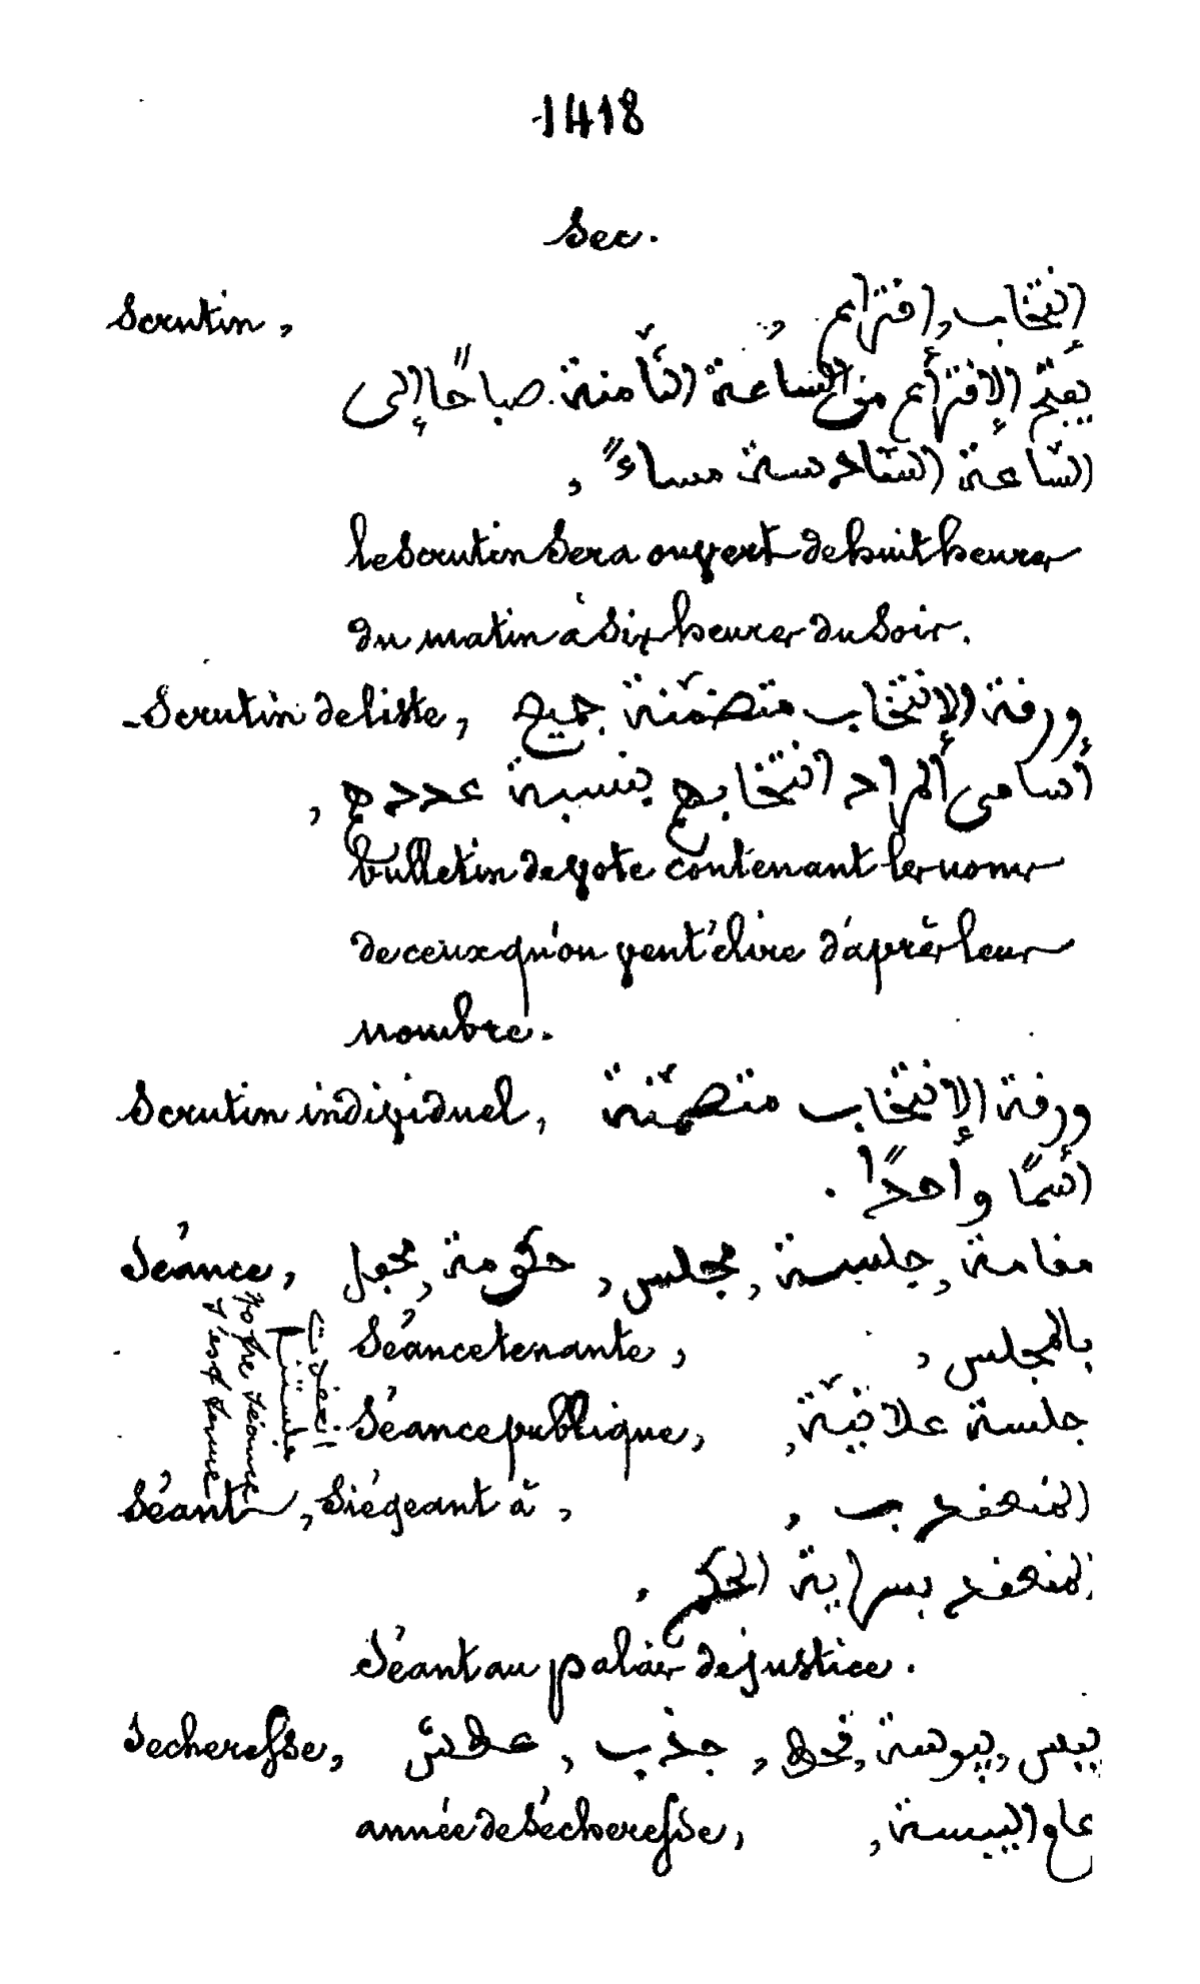 1418
Sec.
Scrutin, إنتخاب, إقتراع,
يفتح الإقتراع من السّاعة الثّامنة صباحًا إلى
السّاعة السّادسة مساءً,
le Scrutin Sera ouvert de huit heures
du matin à Six heures du Soir.
-Scrutin de liste, ورقة الإنتخاب متضمّنة جميع
أسامى المراد انتخابهم بنسبة عددهم,
bulletin de vote contenant les noms
de ceux qu'on veut élire d'après leur
nombre.
Scrutin individuel, ورقة الإنتخاب متضمّنة
إسمًا واحدًا.
Séance, مقامة, جلسة, مجلس, حكومة, محفل
Séance tenante, بالمجلس,
Séance publique, جلسة علانيّة,
انعقدت جلستنا
Notre séance
s'est tenue
Séant, Siégeant à, المنعقد ب,
المنعقد بسراية الحكم.
Séant au palais de justice.
Secheresse, يبس, يبوسة, قحط, جذب, عطش
année de Sécheresse, عام اليبسة,